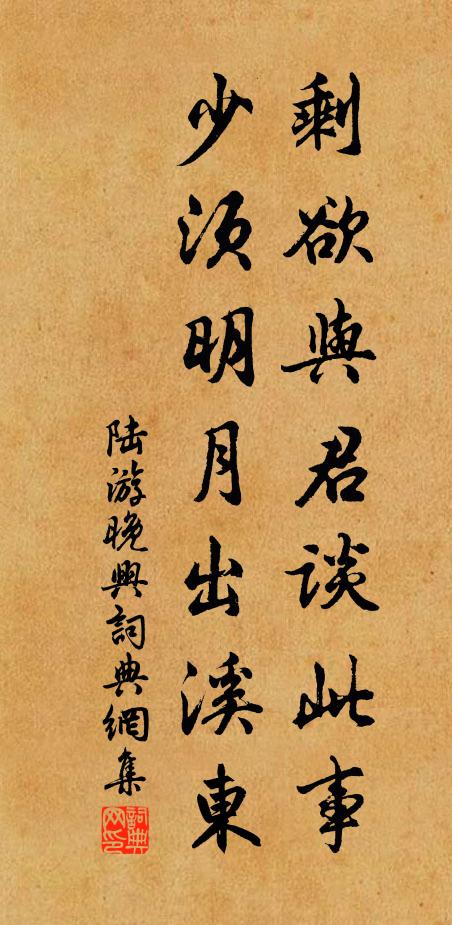 剩欲與君談此事
少須明月出溪東
陸游晚興詞典網集
詞典网印